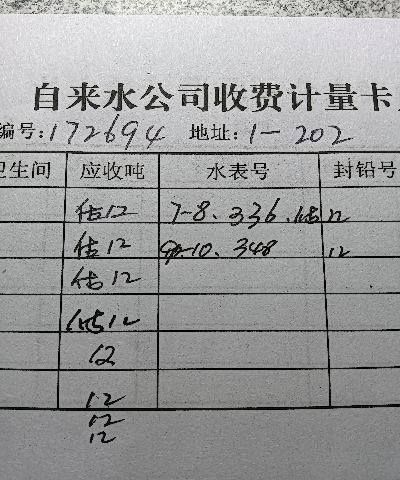 自来水公司收费计量卡
编号:172694 地址:1-202
卫生间 应收吨 水表号 封铅号
估12 7-8.336.估12
估12 9-10.348 12
估12
估12
12
12
12
12